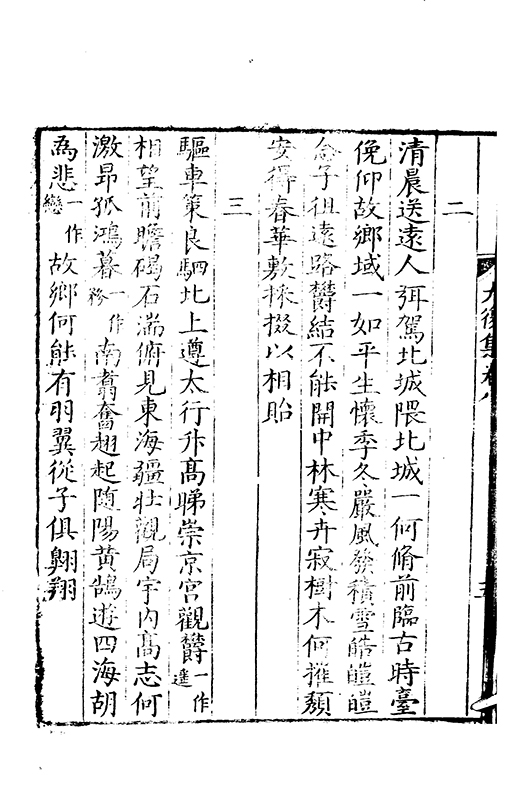 二
清晨送遠人弭駕北城隈北城一何脩前臨古時臺
俛仰故鄉域一如平生懷季冬嚴風發積雪皓皚皚
念子徂遠路欝結不能開中林寒卉寂樹木何摧頹
安得春華敷採掇以相貽
三
驅車策良駟北上遵太行升高睇崇京宮觀欝一作遙
相望前瞻碣石湍俯見東海疆壯觀局宇内高志何
激昂孤鴻暮一作務南翥奮翅起隨陽黃鵠遊四海胡
為悲一作戀故鄉何能有羽翼從子俱翺翔